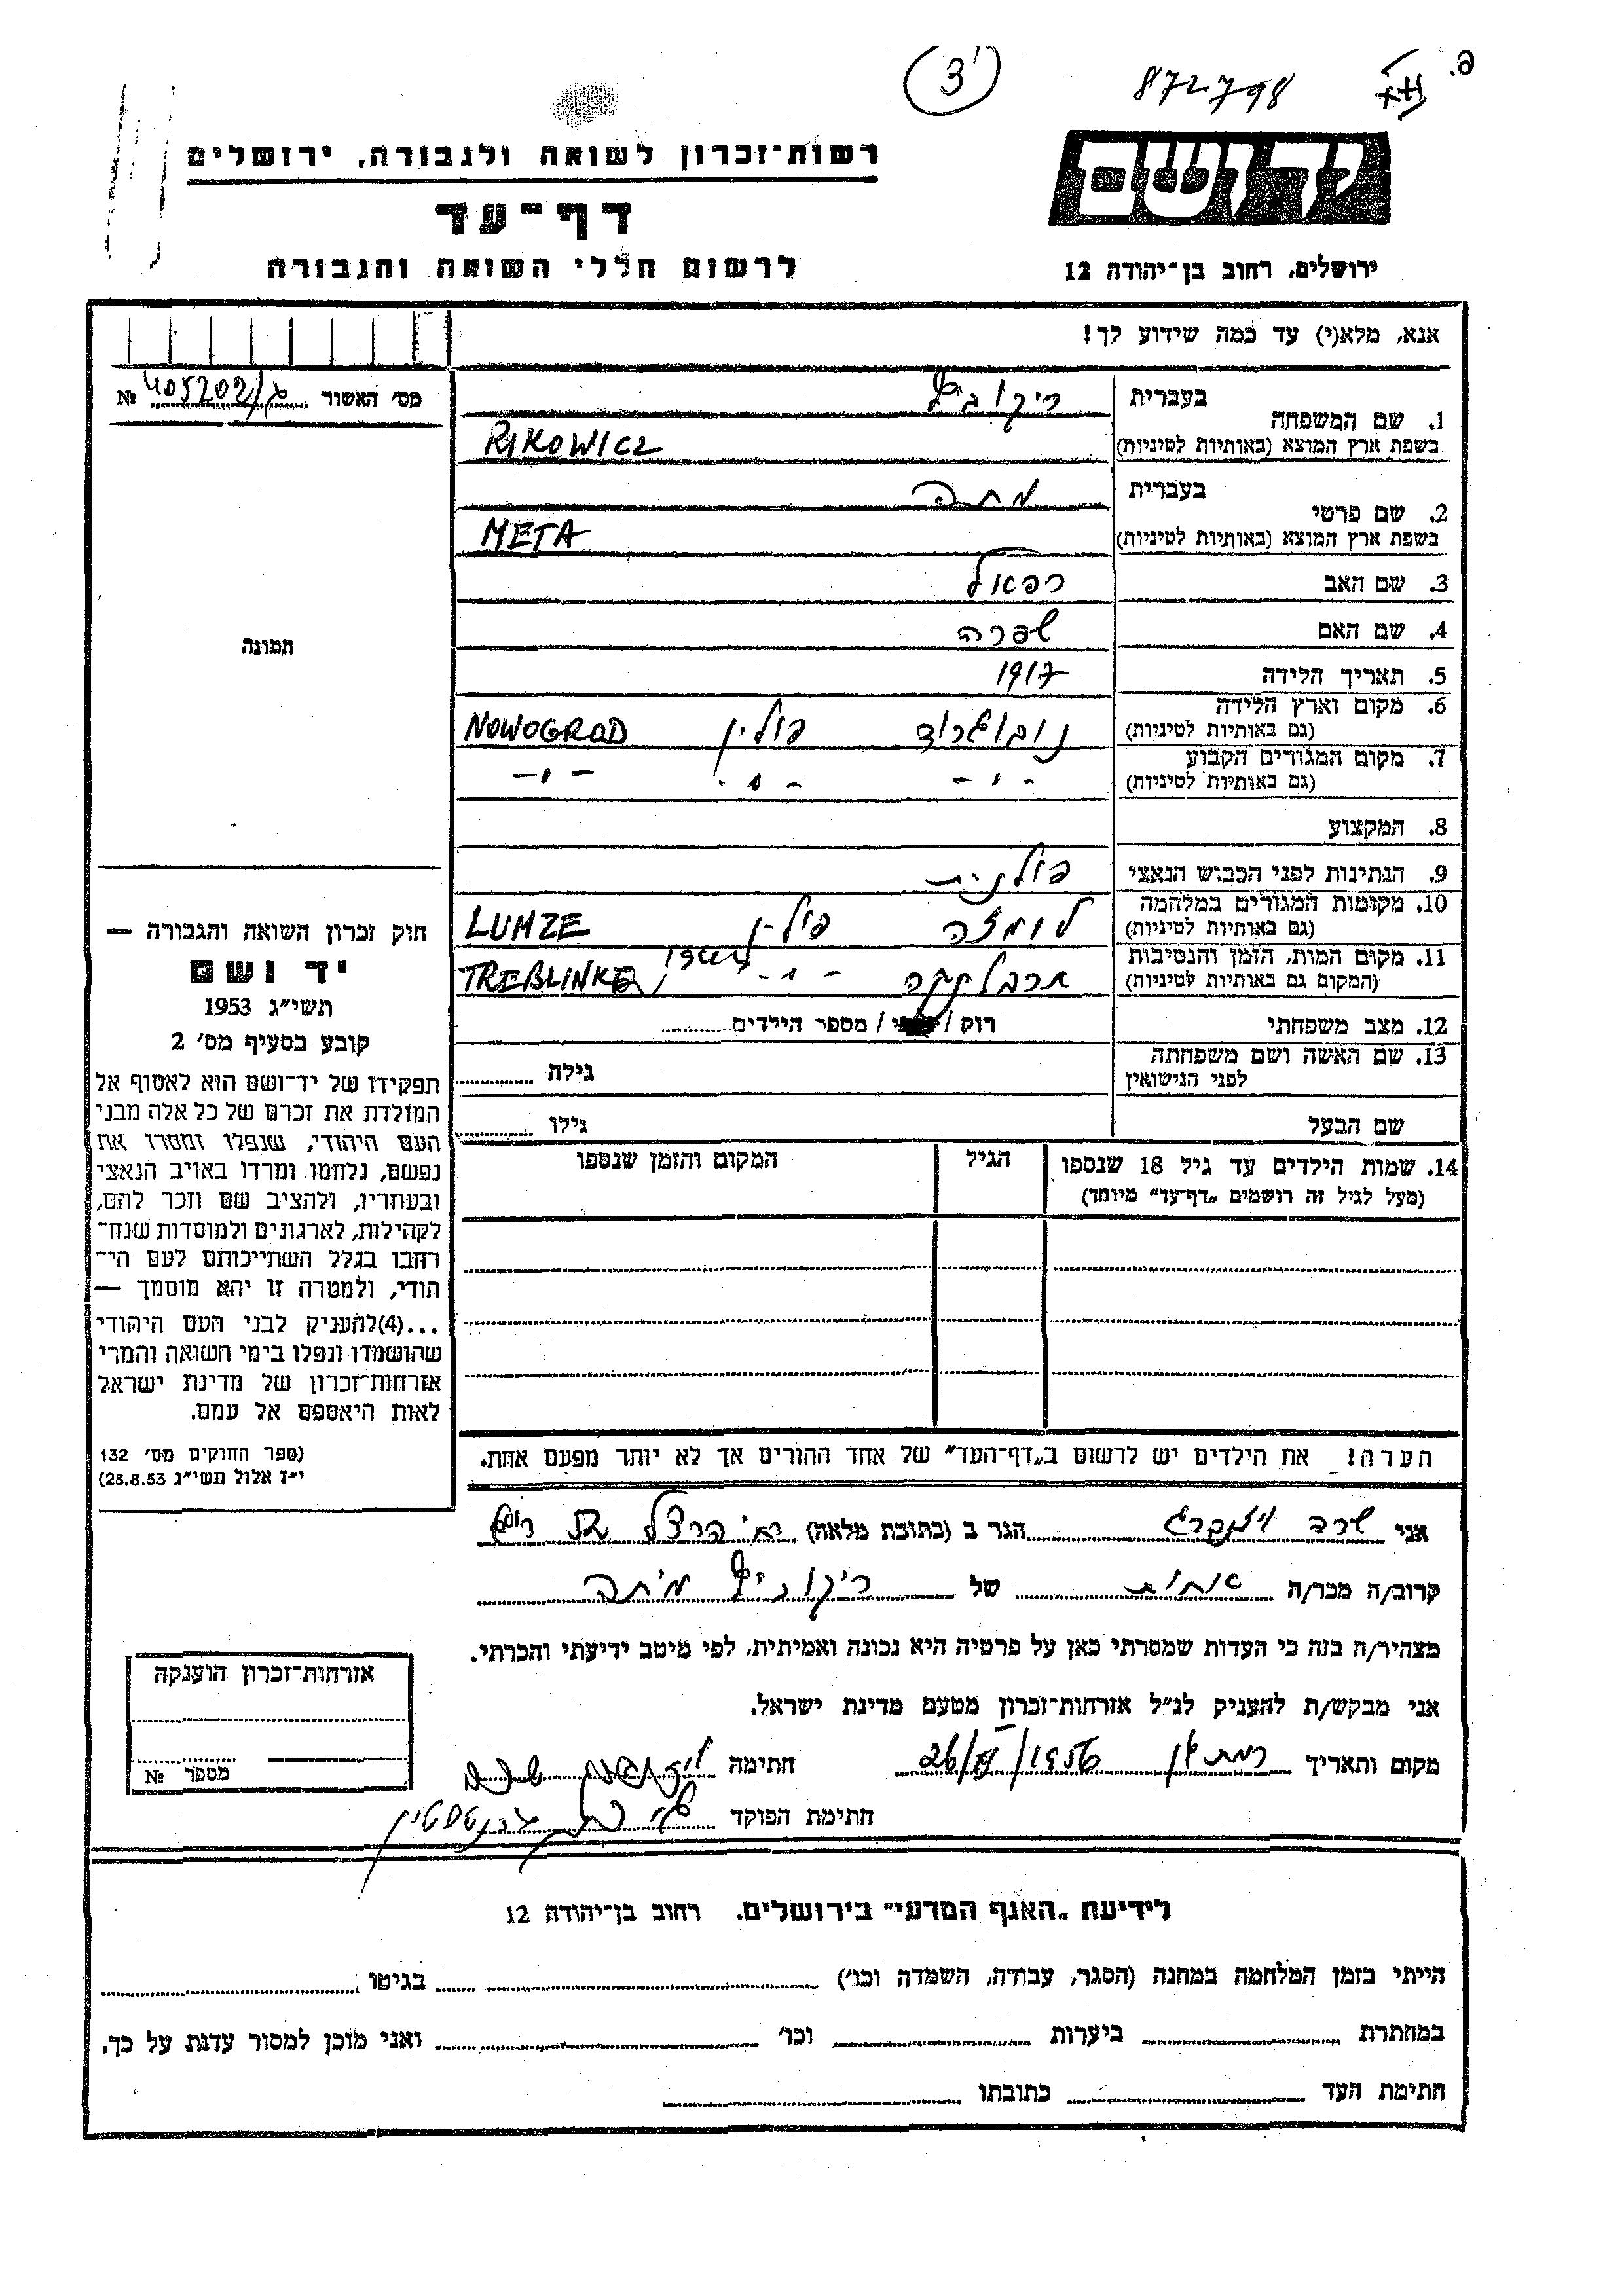 3
872798
רשות־זכרון לשואה ולגבורה, ירושלים
יד ושם
דף־עד
לרשום חללי השואה והגבורה
ירושלים, רחוב בן־יהודה 12
אנא, מלא(י) עד כמה שידוע לך!
מס׳ האשור № 405202/
1. שם המשפחה
בעברית ריקוביץ
בשפת ארץ המוצא (באותיות לטיניות) RIKOWICZ
2. שם פרטי
בעברית מתה
בשפת ארץ המוצא (באותיות לטיניות) META
3. שם האב רפאל
4. שם האם שפרה
5. תאריך הלידה 1917
6. מקום וארץ הלידה נובוגרוד פולין NOWOGRAD
(גם באותיות לטיניות)
7. מקום המגורים הקבוע
(גם באותיות לטיניות) - " - - " - - " -
8. המקצוע
9. הנתינות לפני הכבוש הנאצי פולנית
10. מקומות המגורים במלחמה לומזה פולין LUMZE
(גם באותיות לטיניות)
11. מקום המות, הזמן והנסיבות טרבלינקה - " - TREBLINKE
(המקום גם באותיות לטיניות)
12. מצב משפחתי רוק / / מספר הילדים
13. שם האשה ושם משפחתה גילה
לפני הנישואין
שם הבעל גילו
14. שמות הילדים עד גיל 18 שנספו הגיל המקום והזמן שנספו
(מעל לגיל זה רושמים „דף־עד״ מיוחד)
הערה! את הילדים יש לרשום ב„דף־העד״ של אחד ההורים אך לא יותר מפעם אחת.
תמונה
חוק זכרון השואה והגבורה —
יד ושם
תשי״ג 1953
קובע בסעיף מס׳ 2
תפקידו של יד־ושם הוא לאסוף אל
המולדת את זכרם של כל אלה מבני
העם היהודי, שנפלו ומסרו את
נפשם, נלחמו ומרדו באויב הנאצי
ובעוזריו, ולהציב שם וזכר להם,
לקהילות, לארגונים ולמוסדות שנח־
רחבו בגלל השתייכותם לעם הי־
הודי, ולמטרה זו יהא מוסמך —
...(4)להעניק לבני העם היהודי
שהושמדו ונפלו בימי השואה והמרי
אזרחות־זכרון של מדינת ישראל
לאות היאספם אל עמם.
(ספר החוקים מס׳ 132
י״ז אלול תשי״ג 28.8.53)
אני שרה הגר ב (כתובת מלאה) הרצל
קרוב/ה מכר/ה אחות של ריקוביץ מיתה
מצהיר/ה בזה כי העדות שמסרתי כאן על פרטיה היא נכונה ואמיתית, לפי מיטב ידיעתי והכרתי.
אני מבקש/ת להעניק לנ״ל אזרחות־זכרון מטעם מדינת ישראל.
מקום ותאריך רמת גן 1956 חתימה
חתימת הפוקד
אזרחות־זכרון הוענקה
מספר №
לידיעת „האגף המדעי״ בירושלים. רחוב בן־יהודה 12
הייתי בזמן המלחמה במחנה (הסגר, עבודה, השמדה וכו׳) בגיטו
במחתרת ביערות וכו׳ ואני מוכן למסור עדות על כך.
חתימת העד כתובתו